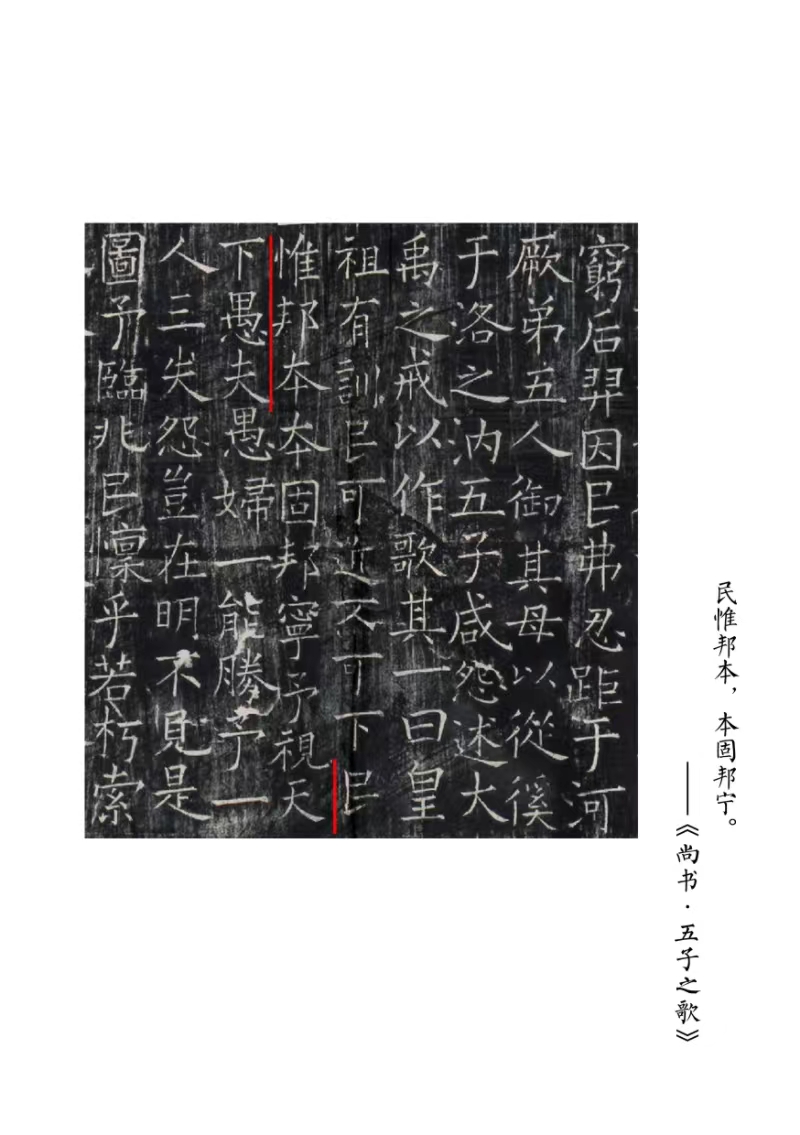 窮后羿因民弗忍距于河
厥弟五人御其母以從徯
于洛之汭五子咸怨述大
禹之戒以作歌其一曰皇
祖有訓民可近不可下民
惟邦本本固邦寧予視天
下愚夫愚婦一能勝予一
人三失怨豈在明不見是
圖予臨兆民懍乎若朽索
民惟邦本，本固邦宁。
——《尚书·五子之歌》